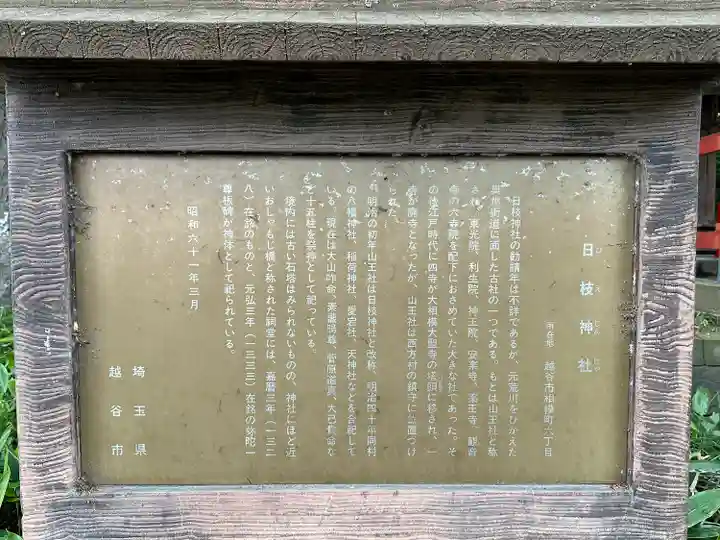 日枝神社
ひえじんじゃ
所在地 越谷市相模町六丁目
日枝神社の勧請年は不詳であるが、元荒川をひかえた
奥州街道に面した古社の一つである。もとは山王社と称
され、東光院、利生院、神王院、安楽寺、薬王寺、観音
寺の六寺院を配下におさめていた大きな社であった。そ
の後江戸時代に四寺が大相模大聖寺の塔頭に移され、一
寺が廃寺となったが、山王社は西方村の鎮守に位置づけ
られた。
明治の初年山王社は日枝神社と改称、明治四十年同村
の八幡神社、稲荷神社、愛宕社、天神社などを合祀して
いる。現在は大山咋命、素盞嗚尊、菅原道真、大己貴命な
ど十五柱を祭神として祀っている。
境内には古い石塔はみられないものの、神社にほど近
いおしゃもじ橋と称された祠堂には、嘉暦三年(一三二
八)在銘のものと、元弘三年(一三三三)在銘の弥陀一
尊板碑が神体として祀られている。
昭和六十一年三月
埼玉県
越谷市